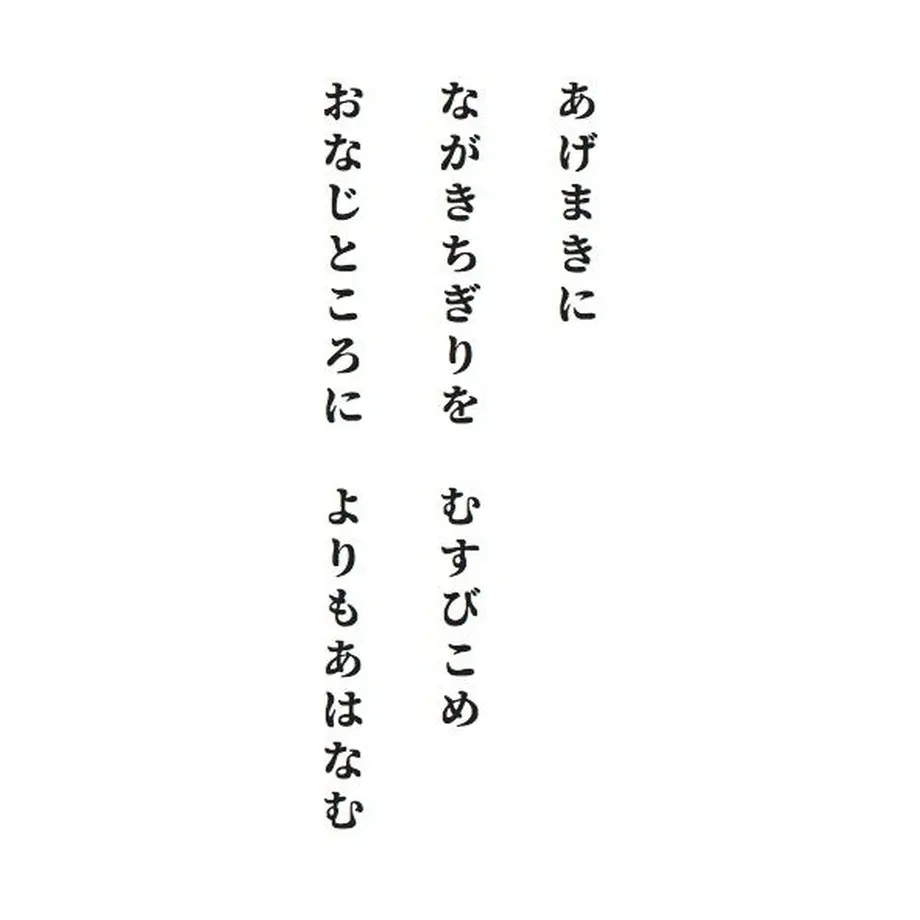 あげまきに
ながきちぎりを　むすびこめ
おなじところに　よりもあはなむ